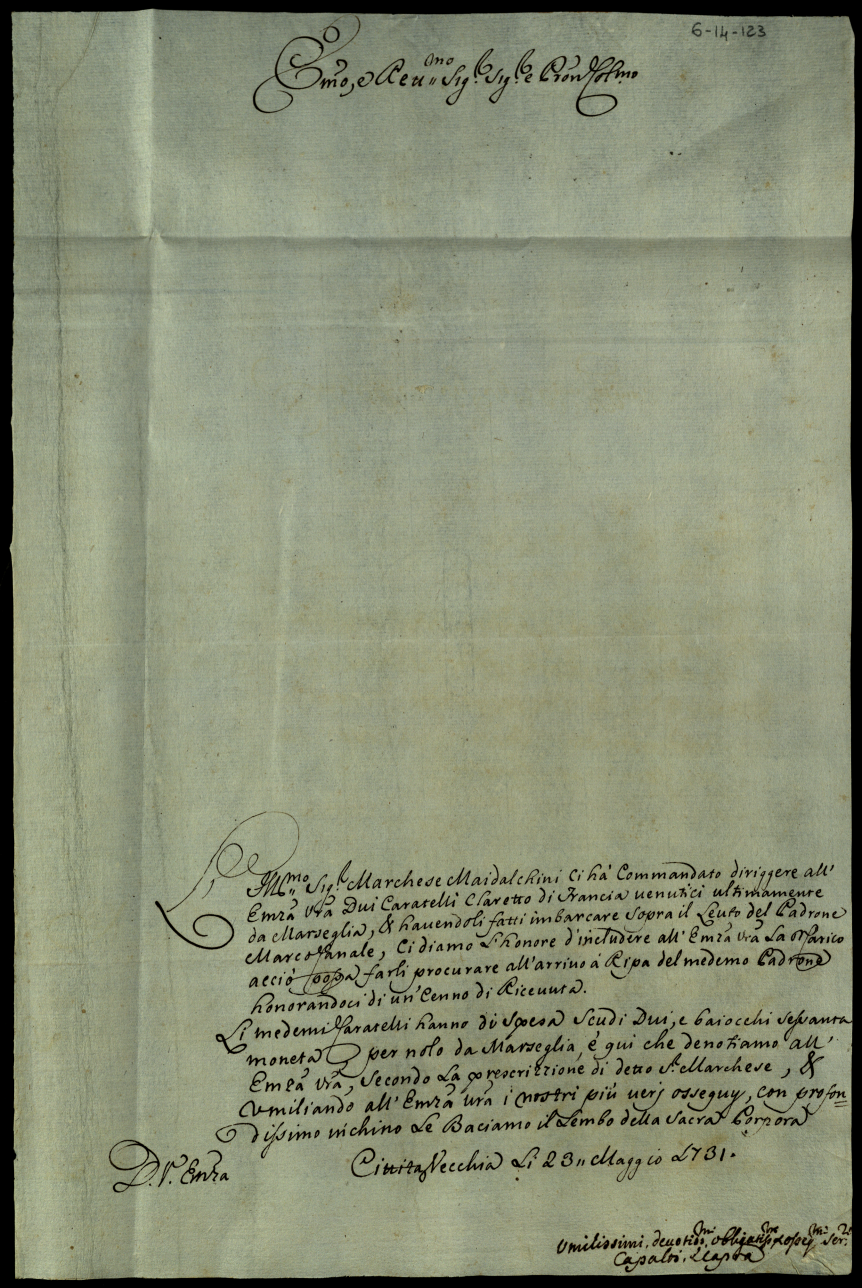 6-14-123
Emo, e Reumo Sigr. Sigr. e Pron Colmo
L'Illmo Sigr. Marchese Maidalchini ci hà Commandato diriggere all'
Emza Vra Dui Caratelli Claretto di Francia venutici ultimamente
da Marseglia, & havendoli fatti imbarcare sopra il Leuto del Padrone
Marco Canale, Ci diamo L'honore d'includere all'Emza Vra La
acciò possa farli procurare all'arrivo à Ripa del medemo Padrone
honorandoci di un'Cenno di Ricevuta.
Li medemi Caratelli hanno di Spesa Scudi Dui, e baiocchi sessanta
moneta per nolo da Marseglia, è qui che denotiamo all'
Emza Vra, Secondo La prescrizzione di detto Sr. Marchese, &
Vmiliando all'Emza Vra i nostri più verj ossequy, con profon=
dissimo inchino Le Baciamo il Lembo della Sacra Porpora
D. V. Emza
Civitta Vecchia Li 23 Maggio 1731.
Vmilissimi, devotmi, obligatmi, Ser.